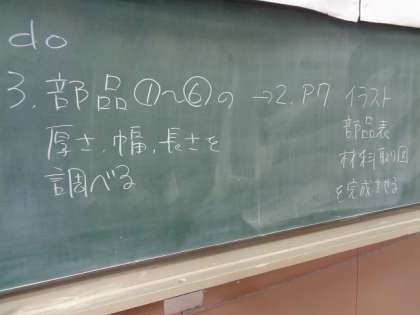 do
3. 部品①〜⑥の
厚さ、幅、長さを
調べる
→2. P7 イラスト
部品表
材料取り図
を完成させる